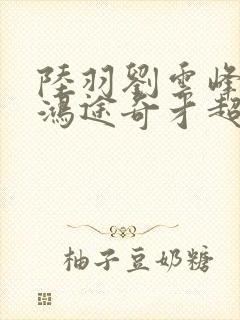 陸羽劉雲峰
鴻途奇才超
柚子豆奶糖